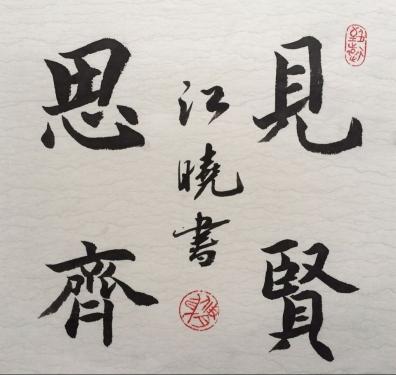 見賢
思齊
江曉書